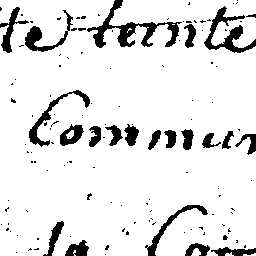 te teinte
Commun
la Car